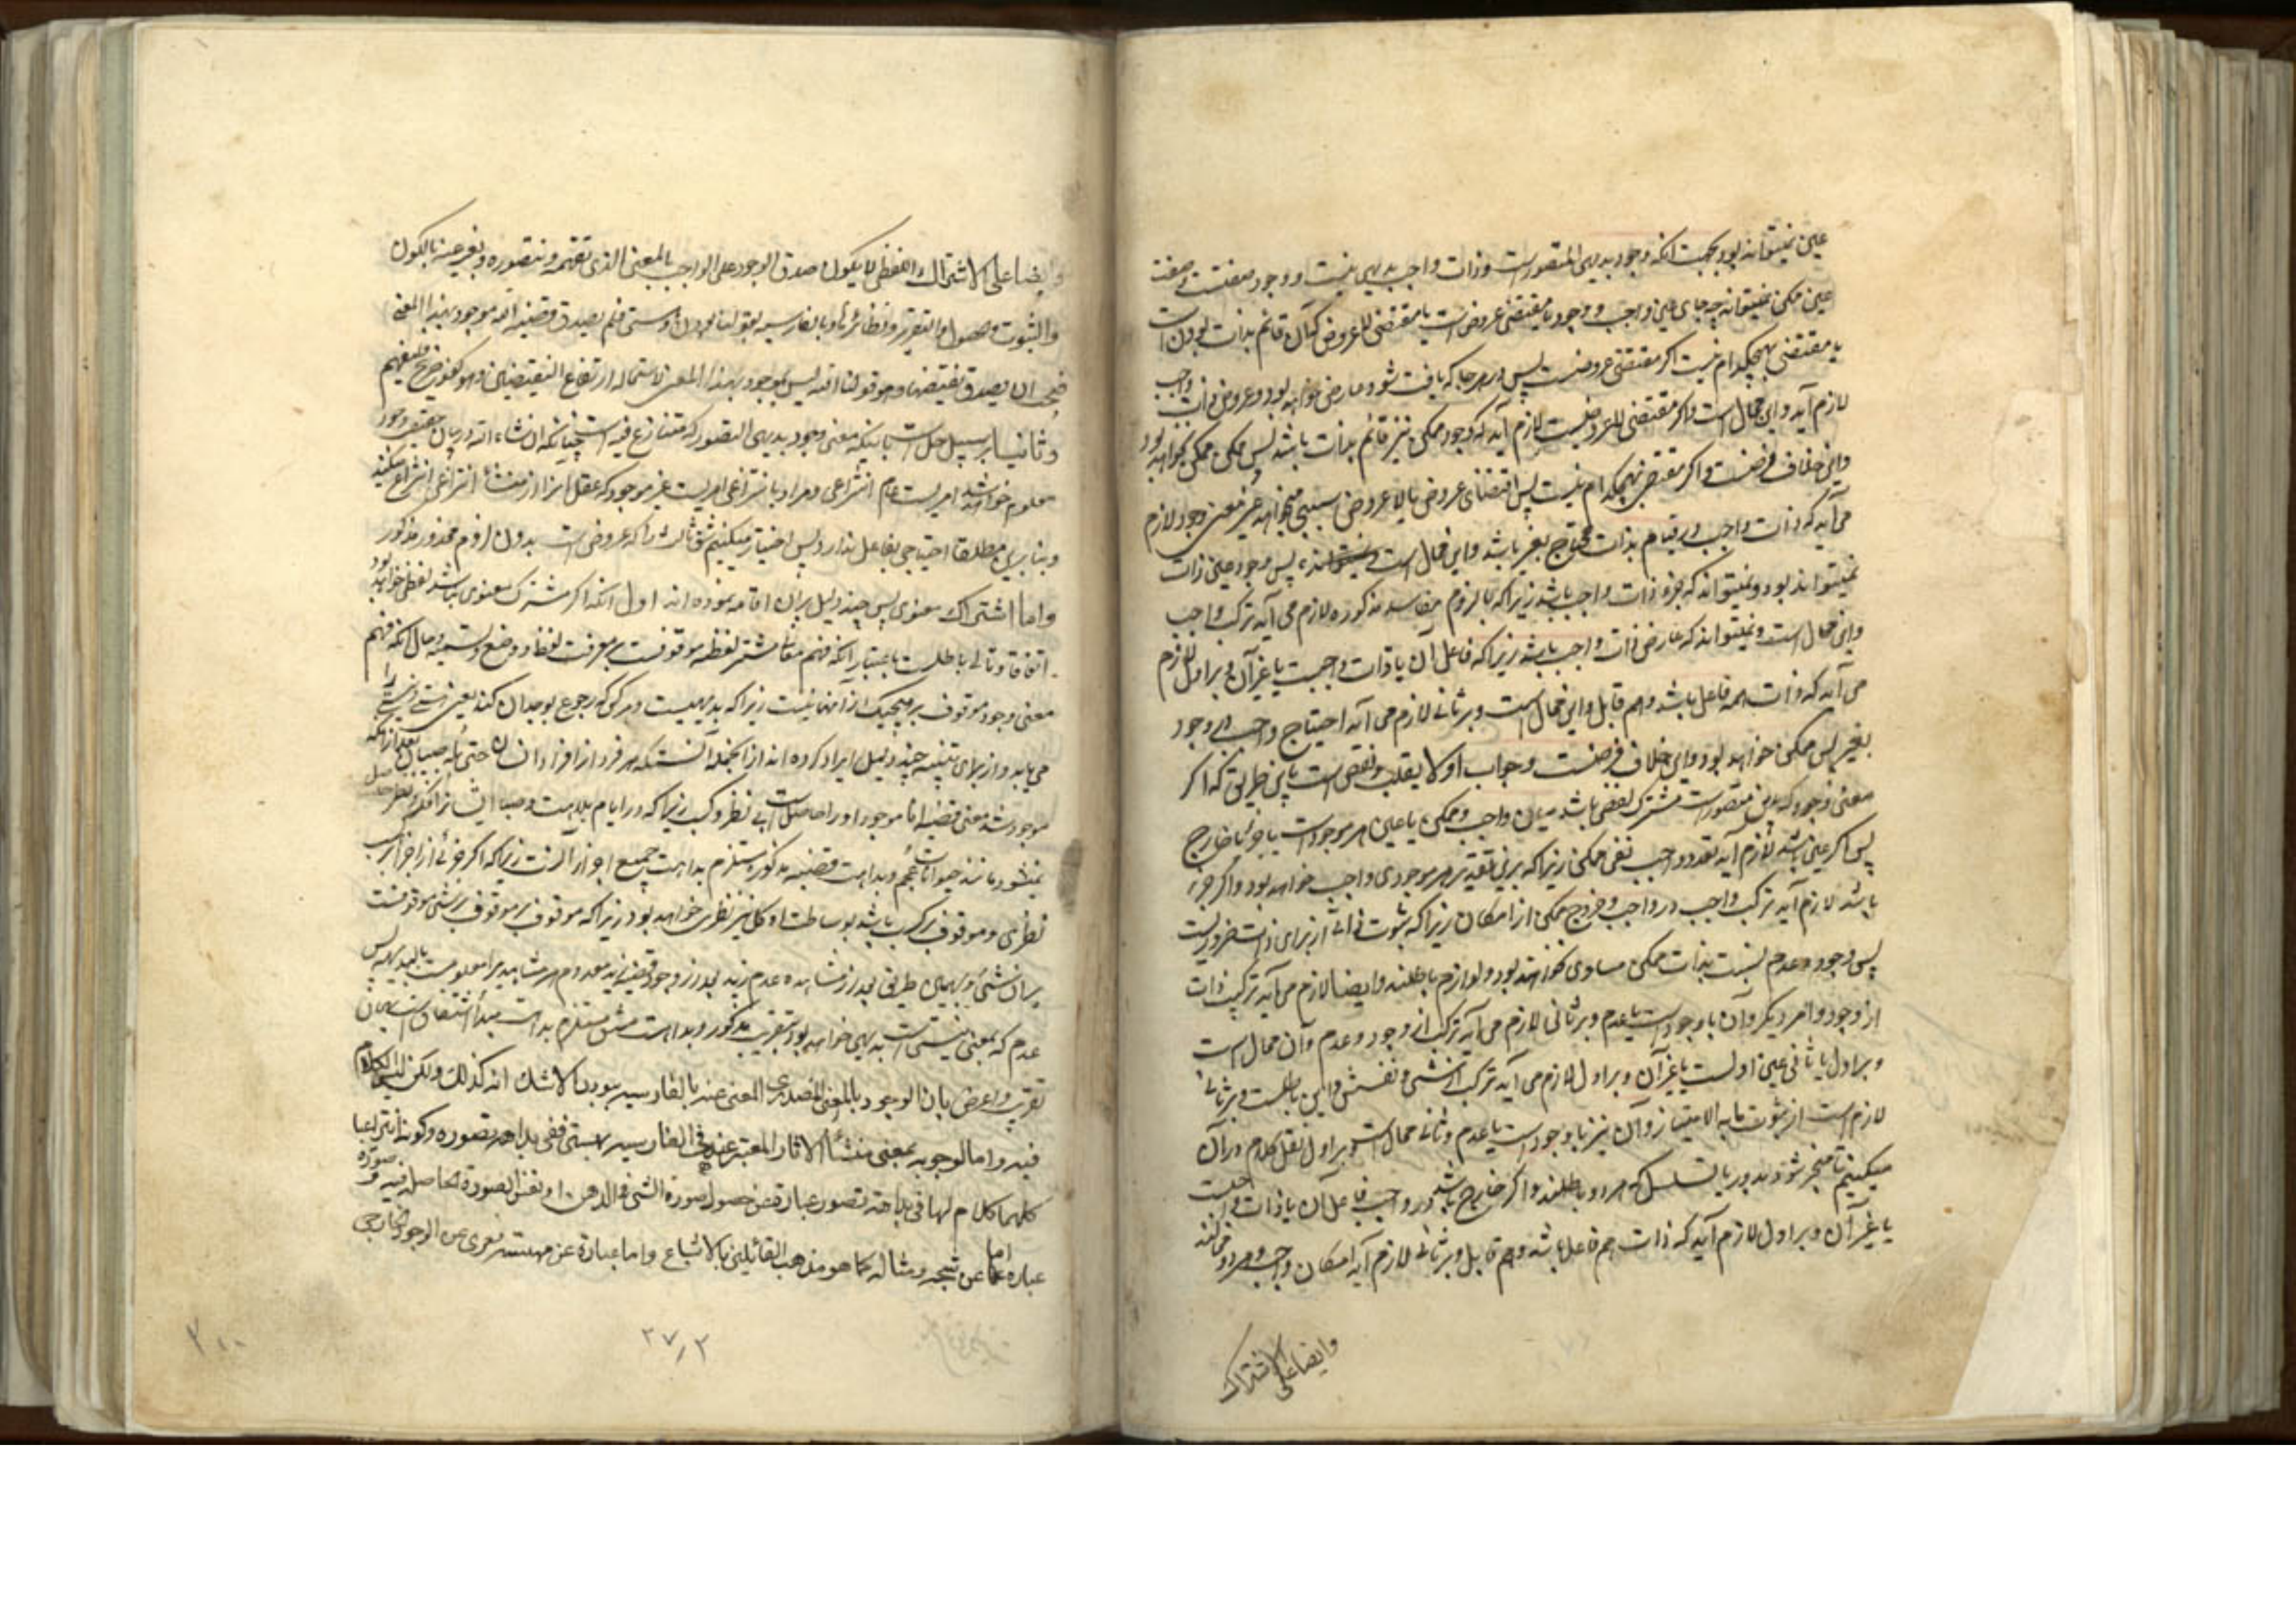 عین نمیتواند بود بجهت آنکه وجود بدیهی التصور است و ذات واجب بدیهی نیست و وجود صفتست و صفت
عین ممکن نمیتواند چه جای عین واجب و وجود یا مقتضی عروض است یا مقتضی للاعروض که آن قائم بذات بودن است
یا مقتضی هیچکدام نیست اگر مقتضی عروضست پس در هر جا که یافت شود عارض خواهد بود و عروض ذات واجب
لازم آید و این محال است و اگر مقتضی للاعروضست لازم آید که وجود ممکن نیز قائم بذات باشد پس ممکن ممکن نخواهد بود
و این خلاف فرضست و اگر مقتضی هیچکدام نیست پس اقتضای عروض یا لاعروض سببی میخواهد غیر معنی وجود و لازم
می آید که ذات واجب در قیام بذات محتاج بغیر باشد و این محال است پس وجود عین ذات
نمیتواند بود و نمیتواند که جزء ذات واجب باشد زیرا که با لزوم مفاسد مذکوره لازم می آید ترکب واجب
و این محال است و نمیتواند که عارض ذات واجب باشد زیرا که فاعل آن یا ذات واجبست یا غیر آن و بر اول لازم
می آید که ذات همه فاعل باشد و هم قابل و این محال است و بر ثانی لازم می آید احتیاج واجب در وجود
بغیر پس ممکن خواهد بود و این خلاف فرضست و جواب اولا بقلب و نقض است باین طریق که اگر
معنی وجود که بدیهی متصور است مشترک لفظی باشد میان واجب و ممکن یا عین هر موجود است یا جزء یا خارج
پس اگر عین باشد لازم آید تعدد واجب نفی ممکن زیرا که برین تقدیر هر موجودی واجب خواهد بود و اگر جزء
باشد لازم آید ترکب واجب در واجب و خروج ممکن از امکان زیرا که ثبوت ذاتی از برای ذات ضروریست
پس وجود و عدم بنسبت بذات ممکن مساوی نخواهند بود و لوازم باطلند و ایضا لازم می آید ترکیب ذات
از وجود و امر دیگر و آن یا وجود است یا عدم و بر ثانی لازم می آید ترکب از وجود و عدم و آن محال است
و بر اول یا ثانی عین اولست یا غیر آن و بر اول لازم می آید ترکب از شیء و نفسش و این باطلست و بر ثانی
لازم است از ثبوت ما به الامتیاز و آن نیز یا وجود است یا عدم و ثانی محال است و بر اول نقل کلام در آن
میکنیم تا منجر شود بدور یا تسلسل که هر دو باطلند و اگر خارج باشد در واجب فاعل آن یا ذات واجبست
یا غیر آن و بر اول لازم آید که ذات هم فاعل باشد و هم قابل و بر ثانی لازم آید امکان واجب و هر دو محالند
وایضا علی الاشتراک
وایضا علی الاشتراک اللفظی لا یکون صدق الوجود علی الواجب بالمعنی الذی نفهمه و نتصوره و نعبر عنه بالکون
والثبوت و الحصول و التقرر و نظائرها و بالفارسیه بقولنا بودن و هستی فلم یصدق قضیة الله موجود بهذا المعنی
فیجب ان یصدق نقیضها و هو قولنا الله لیس بموجود بهذا المعنی لاستحالة ارتفاع النقیضین و هو کفر صریح فلیفهم
و ثانیا بر سبیل حل است باینکه معنی وجود بدیهی التصور که متنازع فیه است چنانکه ان شاء الله در بیان حقیقت وجود
معلوم خواهد شد امریست عام انتزاعی و مراد بانتزاعی امریست غیر موجود که عقل آنرا از منشأ انتزاعی انتزاع میکند
و بنابرین مطلقا احتیاجی بفاعل ندارد پس اختیار میکنیم شق ثالث را که عروض است بدون لزوم محذور مذکور
و اما اشتراک معنوی پس چند دلیل بر آن اقامه نموده اند اول آنکه اگر مشترک معنوی نباشد لفظی خواهد بود
اتفاقا و تالی باطلست باعتبار آنکه فهم معانی مشترک لفظی موقوفست بر معرفت لفظ و وضع و تسمیه و حال آنکه فهم
معنی وجود موقوف بر هیچیک از آنها نیست زیرا که بدیهیست و هر کس که رجوع بوجدان کند یعنی هست و نیست را
می یابد و از برای تنبیه چند دلیل ایراد کرده اند از آنجمله آنستکه هر فرد از افراد انسان حتی بله و صبیان بعد از آنکه
موجود شد معنی قضیه انا موجود او را حاصل است بی نظر و کسب زیرا که در ایام بلاهت و صبا ایشانرا فکر و نظر حاصل
نمیشود مانند حیوانات عجم و بداهت قضیه مذکوره مستلزم بداهت جمیع اجزاء آنست زیرا که اگر جزئی از اجزاء
نظری و موقوف بر کسب باشد بوساطت او کل نیز نظری خواهد بود زیرا که موقوف بر موقوف بر شیء موقوفست
بر آن شیء و بهمین طریق بعد از مشاهده عدم زید بعد از وجود قضیه زید معدوم هر مشاهد را معلومست بالبدیهه پس
عدم که بمعنی نیستی است بدیهی خواهد بود بتقریب مذکور و بداهت مشتق مستلزم بداهت مبدأ اشتقاق است بهمان
تقریب و اعترض بان الوجود بالمعنی المصدری المعنی عنه بالفارسیه ببودن لا شک انه کذلک ولکن لیس الکلام
فیه و اما الوجود بمعنی منشأ الآثار المعتبر عنه فی الفارسیه بهستی ففی بداهة تصوره و کونه انتزاعیا
کلیهما کلام لها فی بداهته تصور عبارة عن حصول صورة الشیء فی الذهن او نفس الصورة الحاصلة فیه و صورة
عبارة اما عن شبحه و مثاله کما هو مذهب القائلین بالاشباح و اما عبارة عن مهیته معری عن الوجود الخارجی
۲۷٫۲